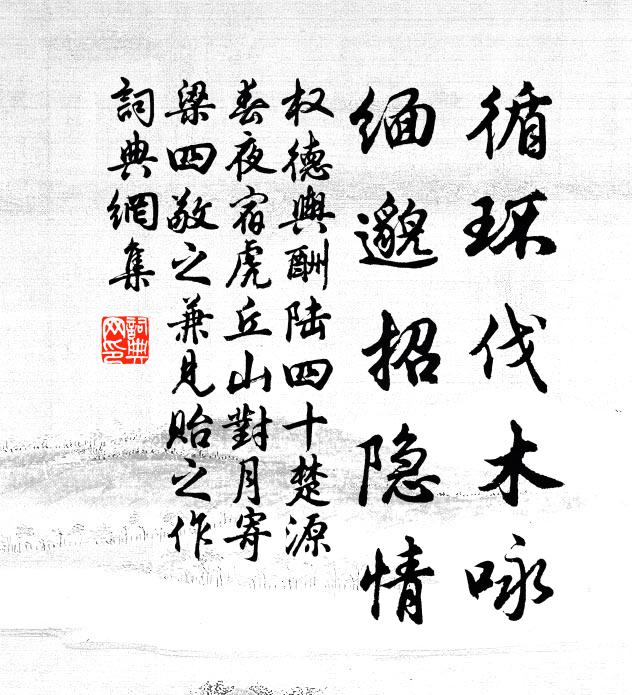 循环伐木咏
缅邈招隐情
权德舆酬陆四十楚源
春夜宿虎丘山對月寄
梁四敬之兼見贻之作
詞典網集
詞典
网印